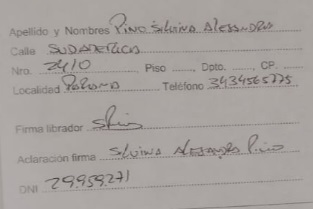 Apellido y Nombres Pino Silvina Alejandra
Calle SUDAMERICA
Nro. 2410 Piso ........ Dpto. ........ CP. ........
Localidad PARANA Teléfono 3434565775
Firma librador
Aclaración firma Silvina Alejandra Pino
DNI 29.959.271